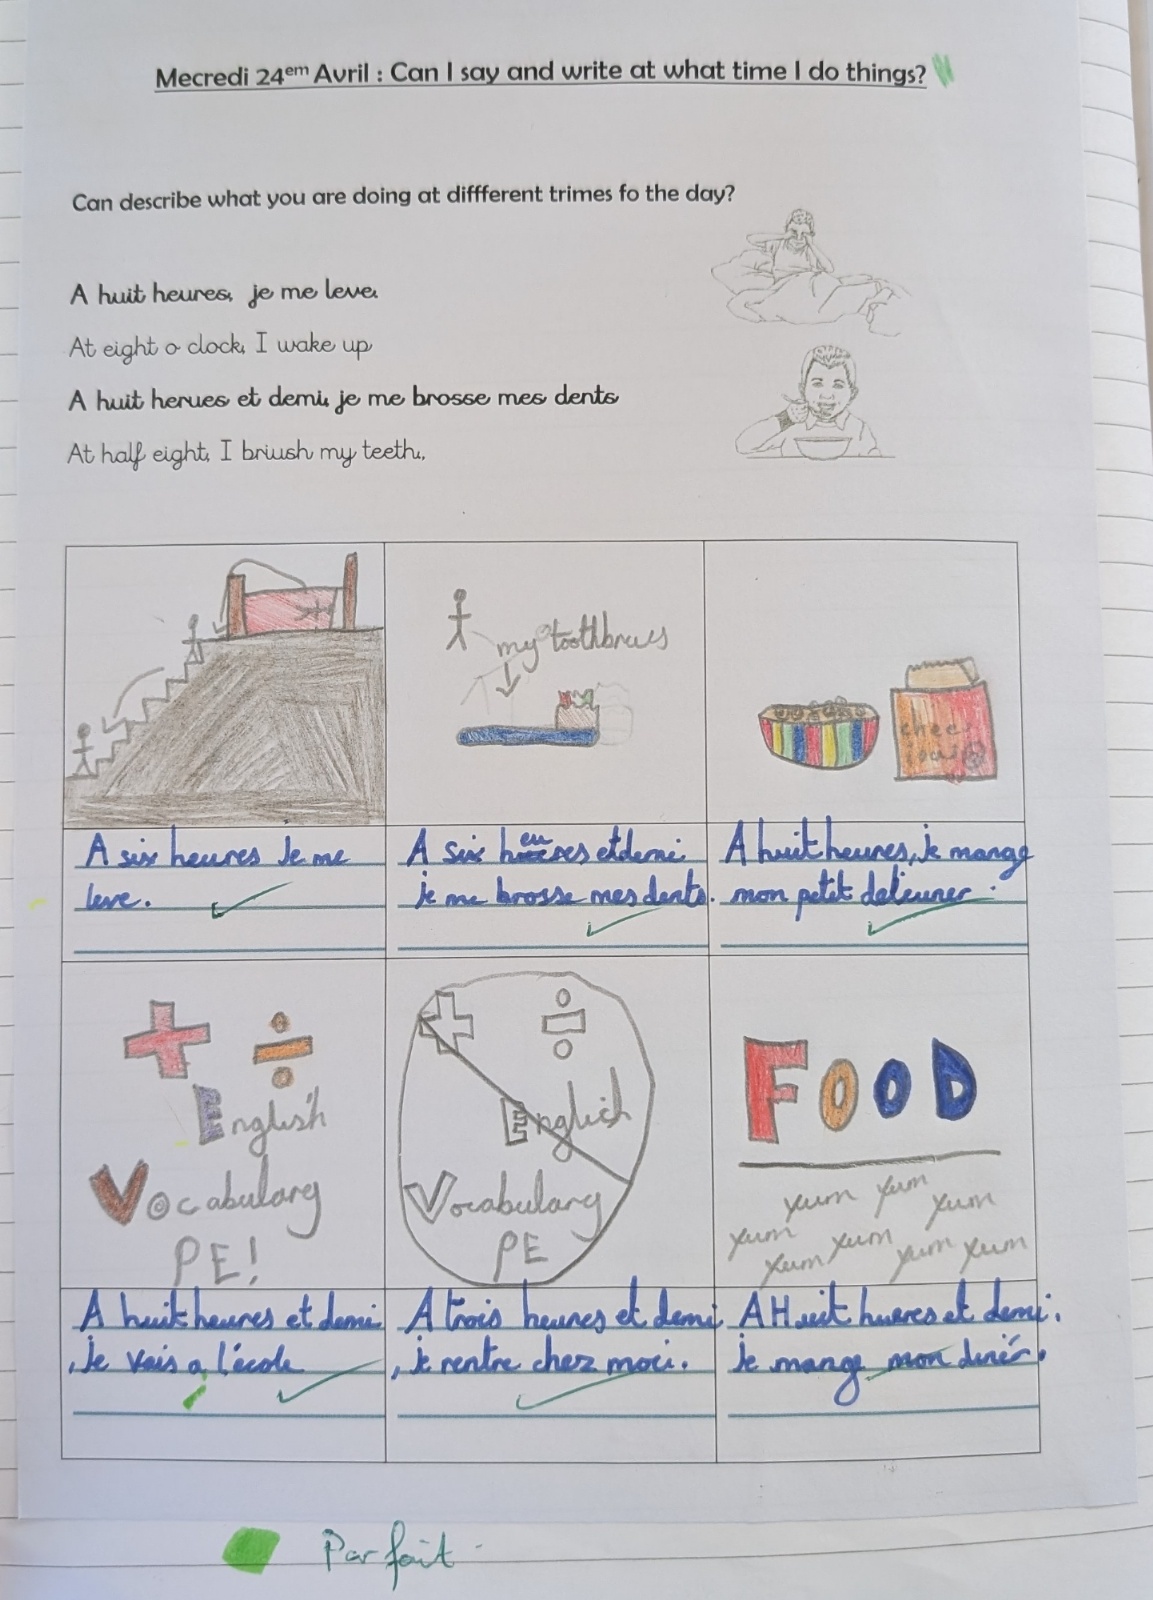 Mecredi 24em Avril : Can I say and write at what time I do things?
Can describe what you are doing at diffferent trimes fo the day?
A huit heures, je me leve.
At eight o clock, I wake up
A huit herues et demi, je me brosse mes dents
At half eight, I briush my teeth,.
my toothbrues
A six heures Je me
leve.
A six heures et demi
je me brosse mes dents.
A huit heures, je mange
mon petit dejeuner.
English
Vocabulary
PE!
English
Vocabulary
PE
FOOD
yum yum yum
yum yum
yum yum yum
A huit heures et demi
, je vais a l'école
A trois heures et demi
, je rentre chez moi.
A Huit hueres et demi.
je mange mon diner.
Parfait